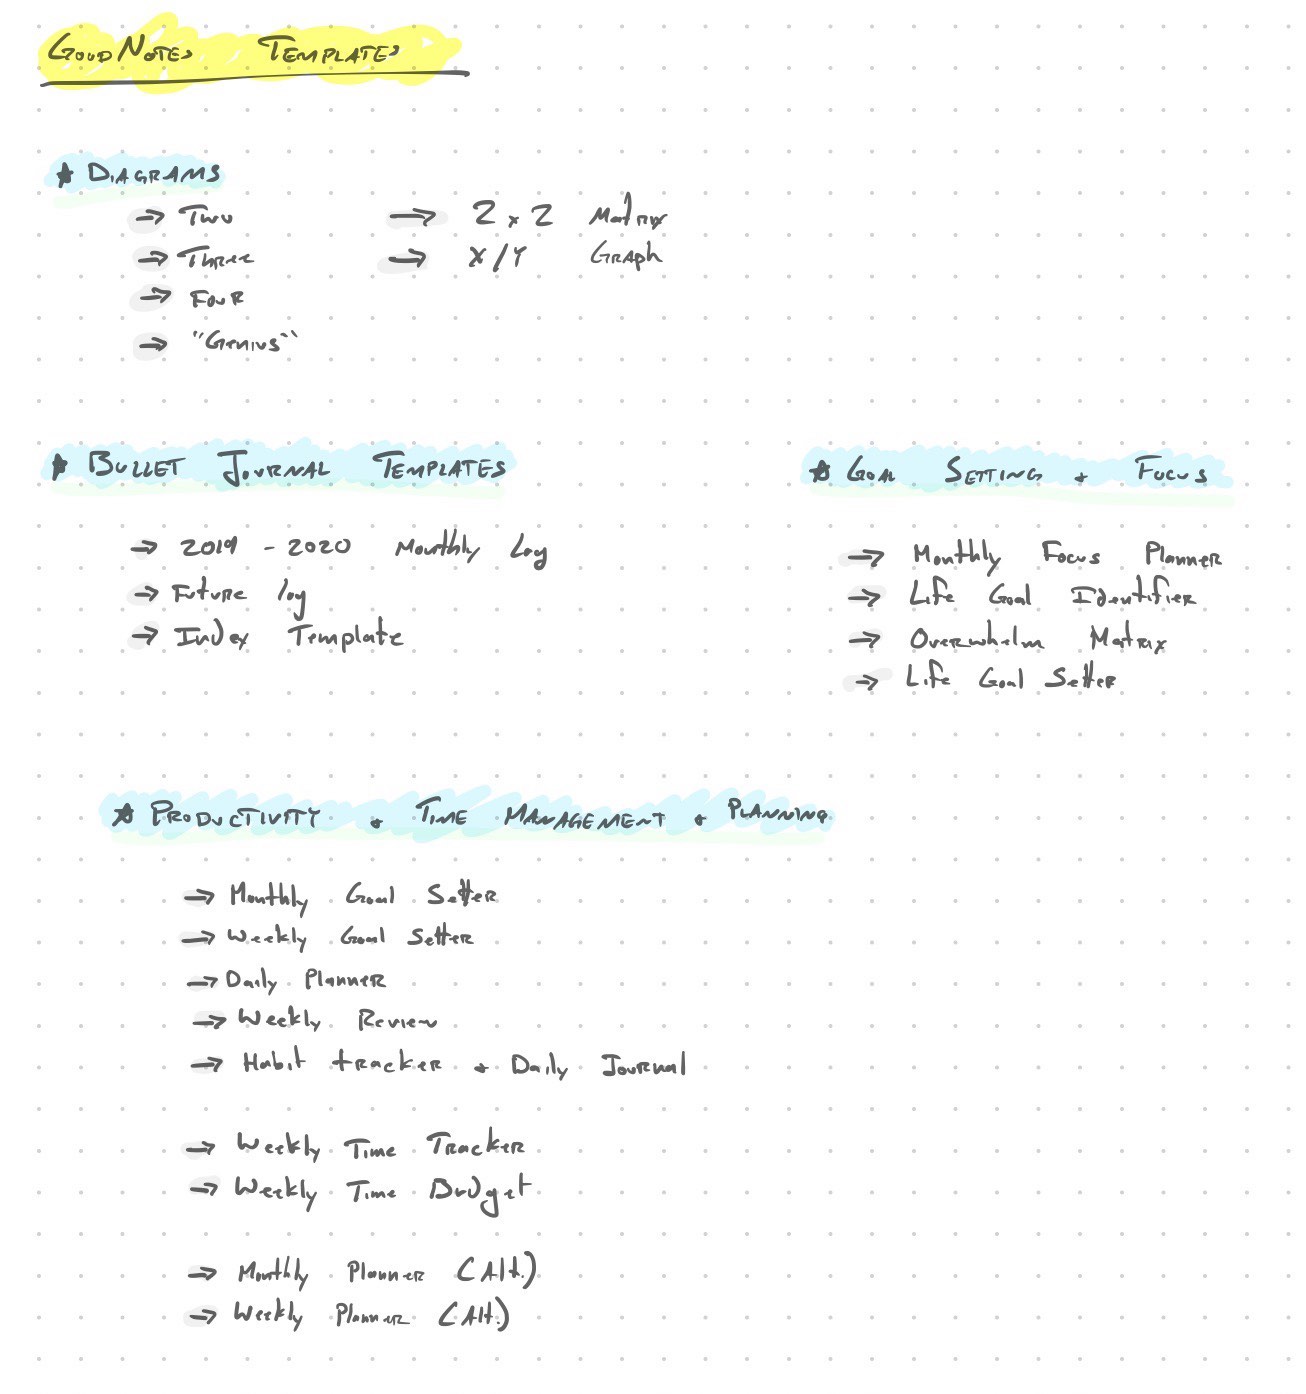 GOODNOTES TEMPLATES
★ DIAGRAMS
→ Two
→ Three
→ Four
→ "Genius"
→ 2x2 Matrix
→ X/Y Graph
★ BULLET JOURNAL TEMPLATES
→ 2019 - 2020 Monthly Log
→ Future log
→ Index Template
★ GOAL SETTING + FOCUS
→ Monthly Focus Planner
→ Life Goal Identifier
→ Overwhelm Matrix
→ Life Goal Setter
★ PRODUCTIVITY + TIME MANAGEMENT + PLANNING
→ Monthly Goal Setter
→ Weekly Goal Setter
→ Daily Planner
→ Weekly Review
→ Habit tracker + Daily Journal
→ Weekly Time Tracker
→ Weekly Time Budget
→ Monthly Planner (Alt.)
→ Weekly Planner (Alt.)